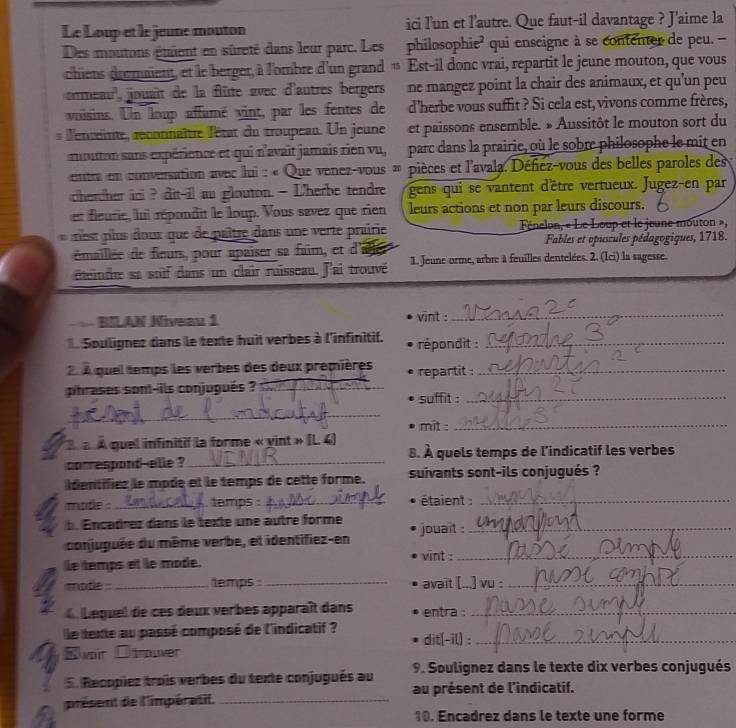 Le Loup et le jeune mouton
Des moutons étaient en sûreté dans leur parc. Les
chiens dormaient, et le berger, à l'ombre d'un grand
ormeau¹, jouait de la flûte avec d'autres bergers
voisins. Un loup affamé vint, par les fentes de
5 l'enceinte, reconnaître l'état du troupeau. Un jeune
mouton sans expérience et qui n'avait jamais rien vu,
entra en conversation avec lui : « Que venez-vous
chercher ici ? dit-il au glouton. – L'herbe tendre
et fleurie, lui répondit le loup. Vous savez que rien
10 n'est plus doux que de paître dans une verte prairie
émaillée de fleurs, pour apaiser sa faim, et d'aller
éteindre sa soif dans un clair ruisseau. J'ai trouvé
ici l'un et l'autre. Que faut-il davantage ? J'aime la
philosophie² qui enseigne à se contenter de peu. –
15 Est-il donc vrai, repartit le jeune mouton, que vous
ne mangez point la chair des animaux, et qu'un peu
d'herbe vous suffit ? Si cela est, vivons comme frères,
et paissons ensemble. » Aussitôt le mouton sort du
parc dans la prairie, où le sobre philosophe le mit en
20 pièces et l'avala. Défiez-vous des belles paroles des
gens qui se vantent d'être vertueux. Jugez-en par
leurs actions et non par leurs discours. 6
Fénelon, « Le Loup et le jeune mouton »,
Fables et opuscules pédagogiques, 1718.
1. Jeune orme, arbre à feuilles dentelées. 2. (Ici) la sagesse.
BILAN Niveau 1
1. Soulignez dans le texte huit verbes à l'infinitif.
2. À quel temps les verbes des deux premières
phrases sont-ils conjugués ?
présent de l'indicatif
3. a. À quel infinitif la forme « vint » (L. 4)
correspond-elle ? VENIR
Identifiez le mode et le temps de cette forme.
mode : indicatif temps : passé simple
b. Encadrez dans le texte une autre forme
conjuguée du même verbe, et identifiez-en
le temps et le mode.
mode : temps :
4. Lequel de ces deux verbes apparaît dans
le texte au passé composé de l'indicatif ?
voir □ trouver
5. Recopiez trois verbes du texte conjugués au
présent de l'impératif.
• vint : 2e
• répondit : répondre 3e
• repartit : 2e
• suffit : 2e
• mit : 3e
8. À quels temps de l'indicatif les verbes
suivants sont-ils conjugués ?
• étaient :
• jouait :
• vint : passé simple
• avait [...] vu : passé
• entra : passé simple
• dit(-il) : passé simple
9. Soulignez dans le texte dix verbes conjugués
au présent de l'indicatif.
10. Encadrez dans le texte une forme